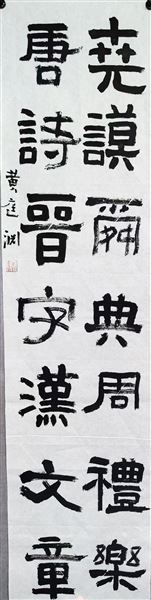 堯謨舜典周禮樂
唐詩晉字漢文章
黃